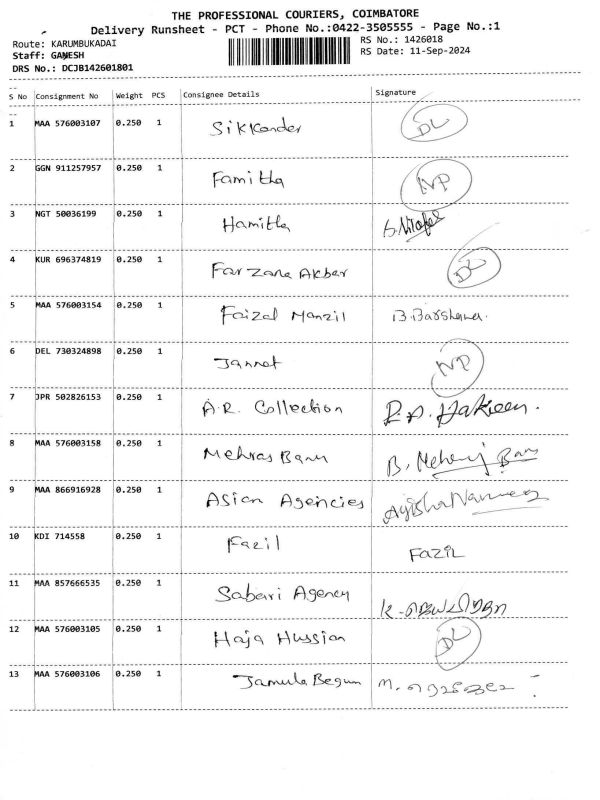 THE PROFESSIONAL COURIERS, COIMBATORE
Delivery Runsheet - PCT - Phone No.:0422-3505555 - Page No.:1
Route: KARUMBUKADAI
RS No.: 1426018
Staff: GANESH
RS Date: 11-Sep-2024
DRS No.: DCJB142601801
S No Consignment No Weight PCS Consignee Details Signature
1 MAA 576003107 0.250 1 Sikkander DL
2 GGN 911257957 0.250 1 Famitha NP
3 NGT 50036199 0.250 1 Hamitha
4 KUR 696374819 0.250 1 Farzana Akber DL
5 MAA 576003154 0.250 1 Faizal Manzil B.Barshana.
6 DEL 730324898 0.250 1 Jannet NP
7 JPR 502826153 0.250 1 A.R. Collection R.A. Hakeem.
8 MAA 576003158 0.250 1 Mehras Banu B. Meheraj Banu
9 MAA 866916928 0.250 1 Asian Agencies Ayisha
10 KDI 714558 0.250 1 Fazil FAZIL
11 MAA 857666535 0.250 1 Sabari Agency
12 MAA 576003105 0.250 1 Haja Hussian DL
13 MAA 576003106 0.250 1 Jamula Begum